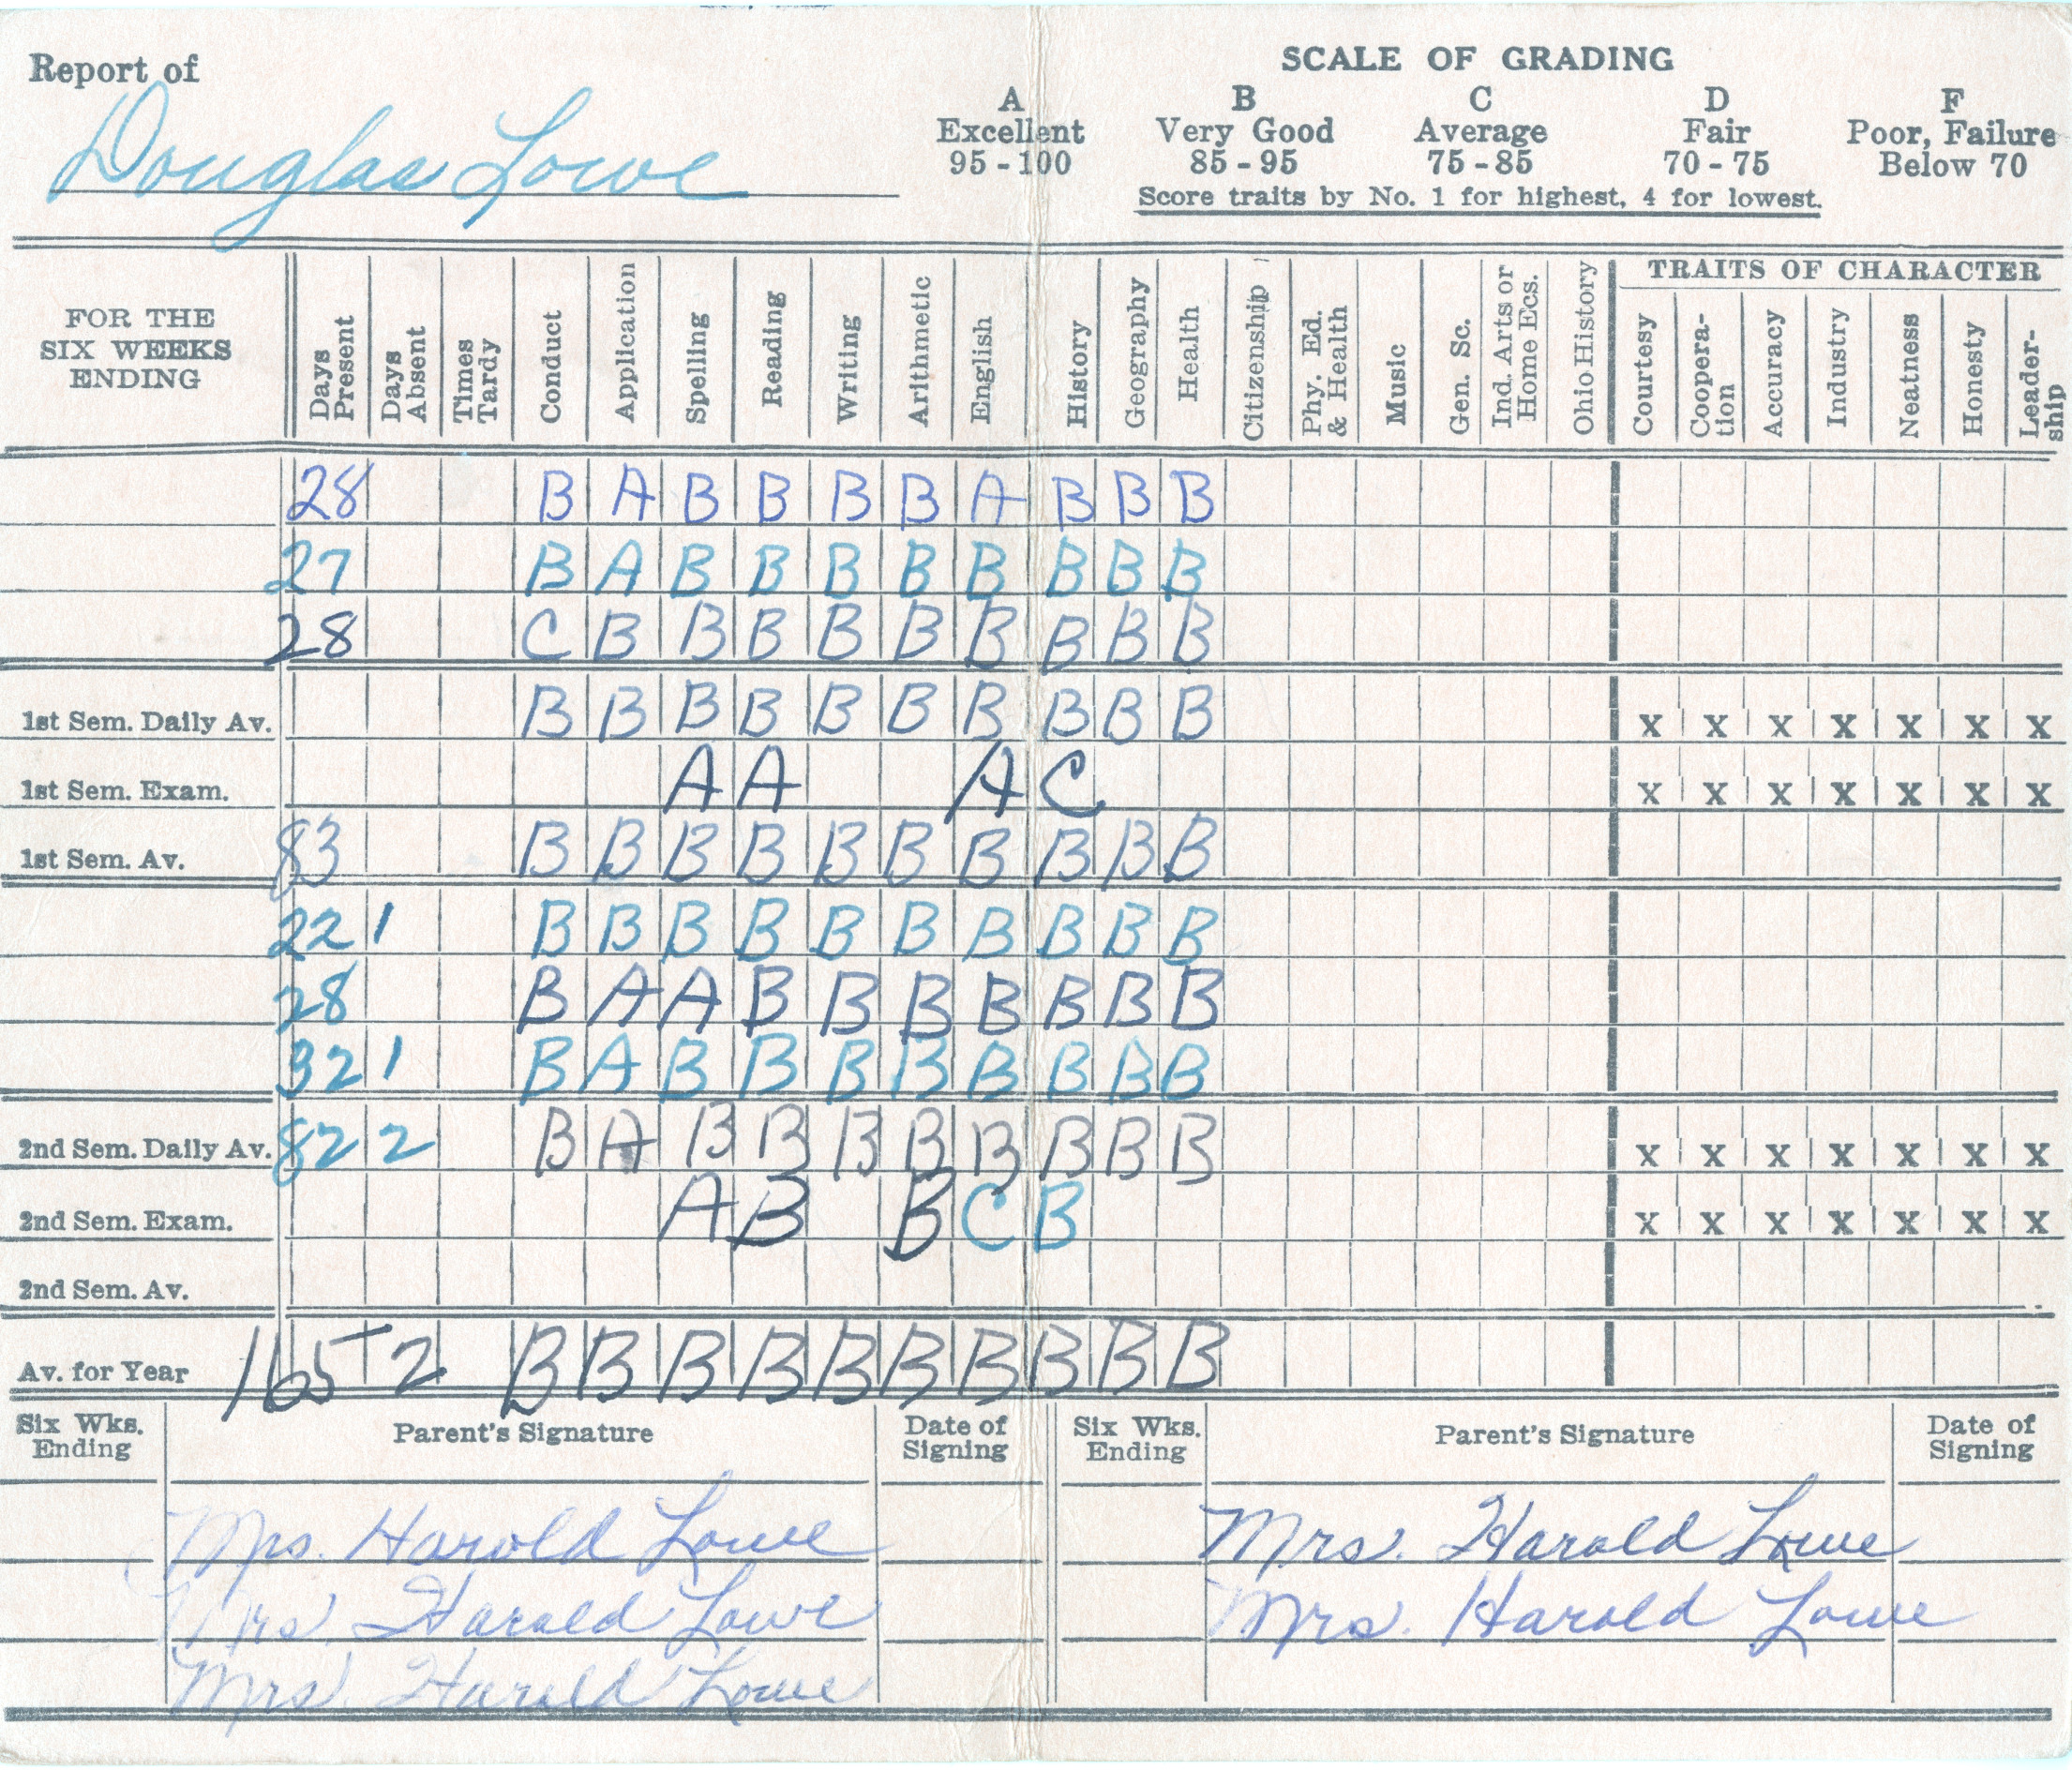 Report of
Douglas Lowe
SCALE OF GRADING
A B C D F
Excellent Very Good Average Fair Poor, Failure
95 - 100 85 - 95 75 - 85 70 - 75 Below 70
Score traits by No. 1 for highest, 4 for lowest.
FOR THE SIX WEEKS ENDING
Days Present
Days Absent
Times Tardy
Conduct
Application
Spelling
Reading
Writing
Arithmetic
English
History
Geography
Health
Citizenship
Phy. Ed. & Health
Music
Gen. Sc.
Ind. Arts or Home Ecs.
Ohio History
TRAITS OF CHARACTER
Courtesy
Coopera-tion
Accuracy
Industry
Neatness
Honesty
Leader-ship
28 B A B B B B A B B B
27 B A B B B B B B B B
28 C B B B B B B B B B
1st Sem. Daily Av. B B B B B B B B B B x x x x x x x
1st Sem. Exam. A A A C x x x x x x x
1st Sem. Av. 83 B B B B B B B B B B
22 1 B B B B B B B B B B
28 B A A B B B B B B B
32 1 B A B B B B B B B B
2nd Sem. Daily Av. 82 2 B A B B B B B B B B x x x x x x x
2nd Sem. Exam. A B B C B x x x x x x x
2nd Sem. Av.
Av. for Year 165 2 B B B B B B B B B B
Six Wks. Ending Parent's Signature Date of Signing Six Wks. Ending Parent's Signature Date of Signing
Mrs. Harold Lowe Mrs. Harold Lowe
Mrs. Harold Lowe Mrs. Harold Lowe
Mrs. Harold Lowe